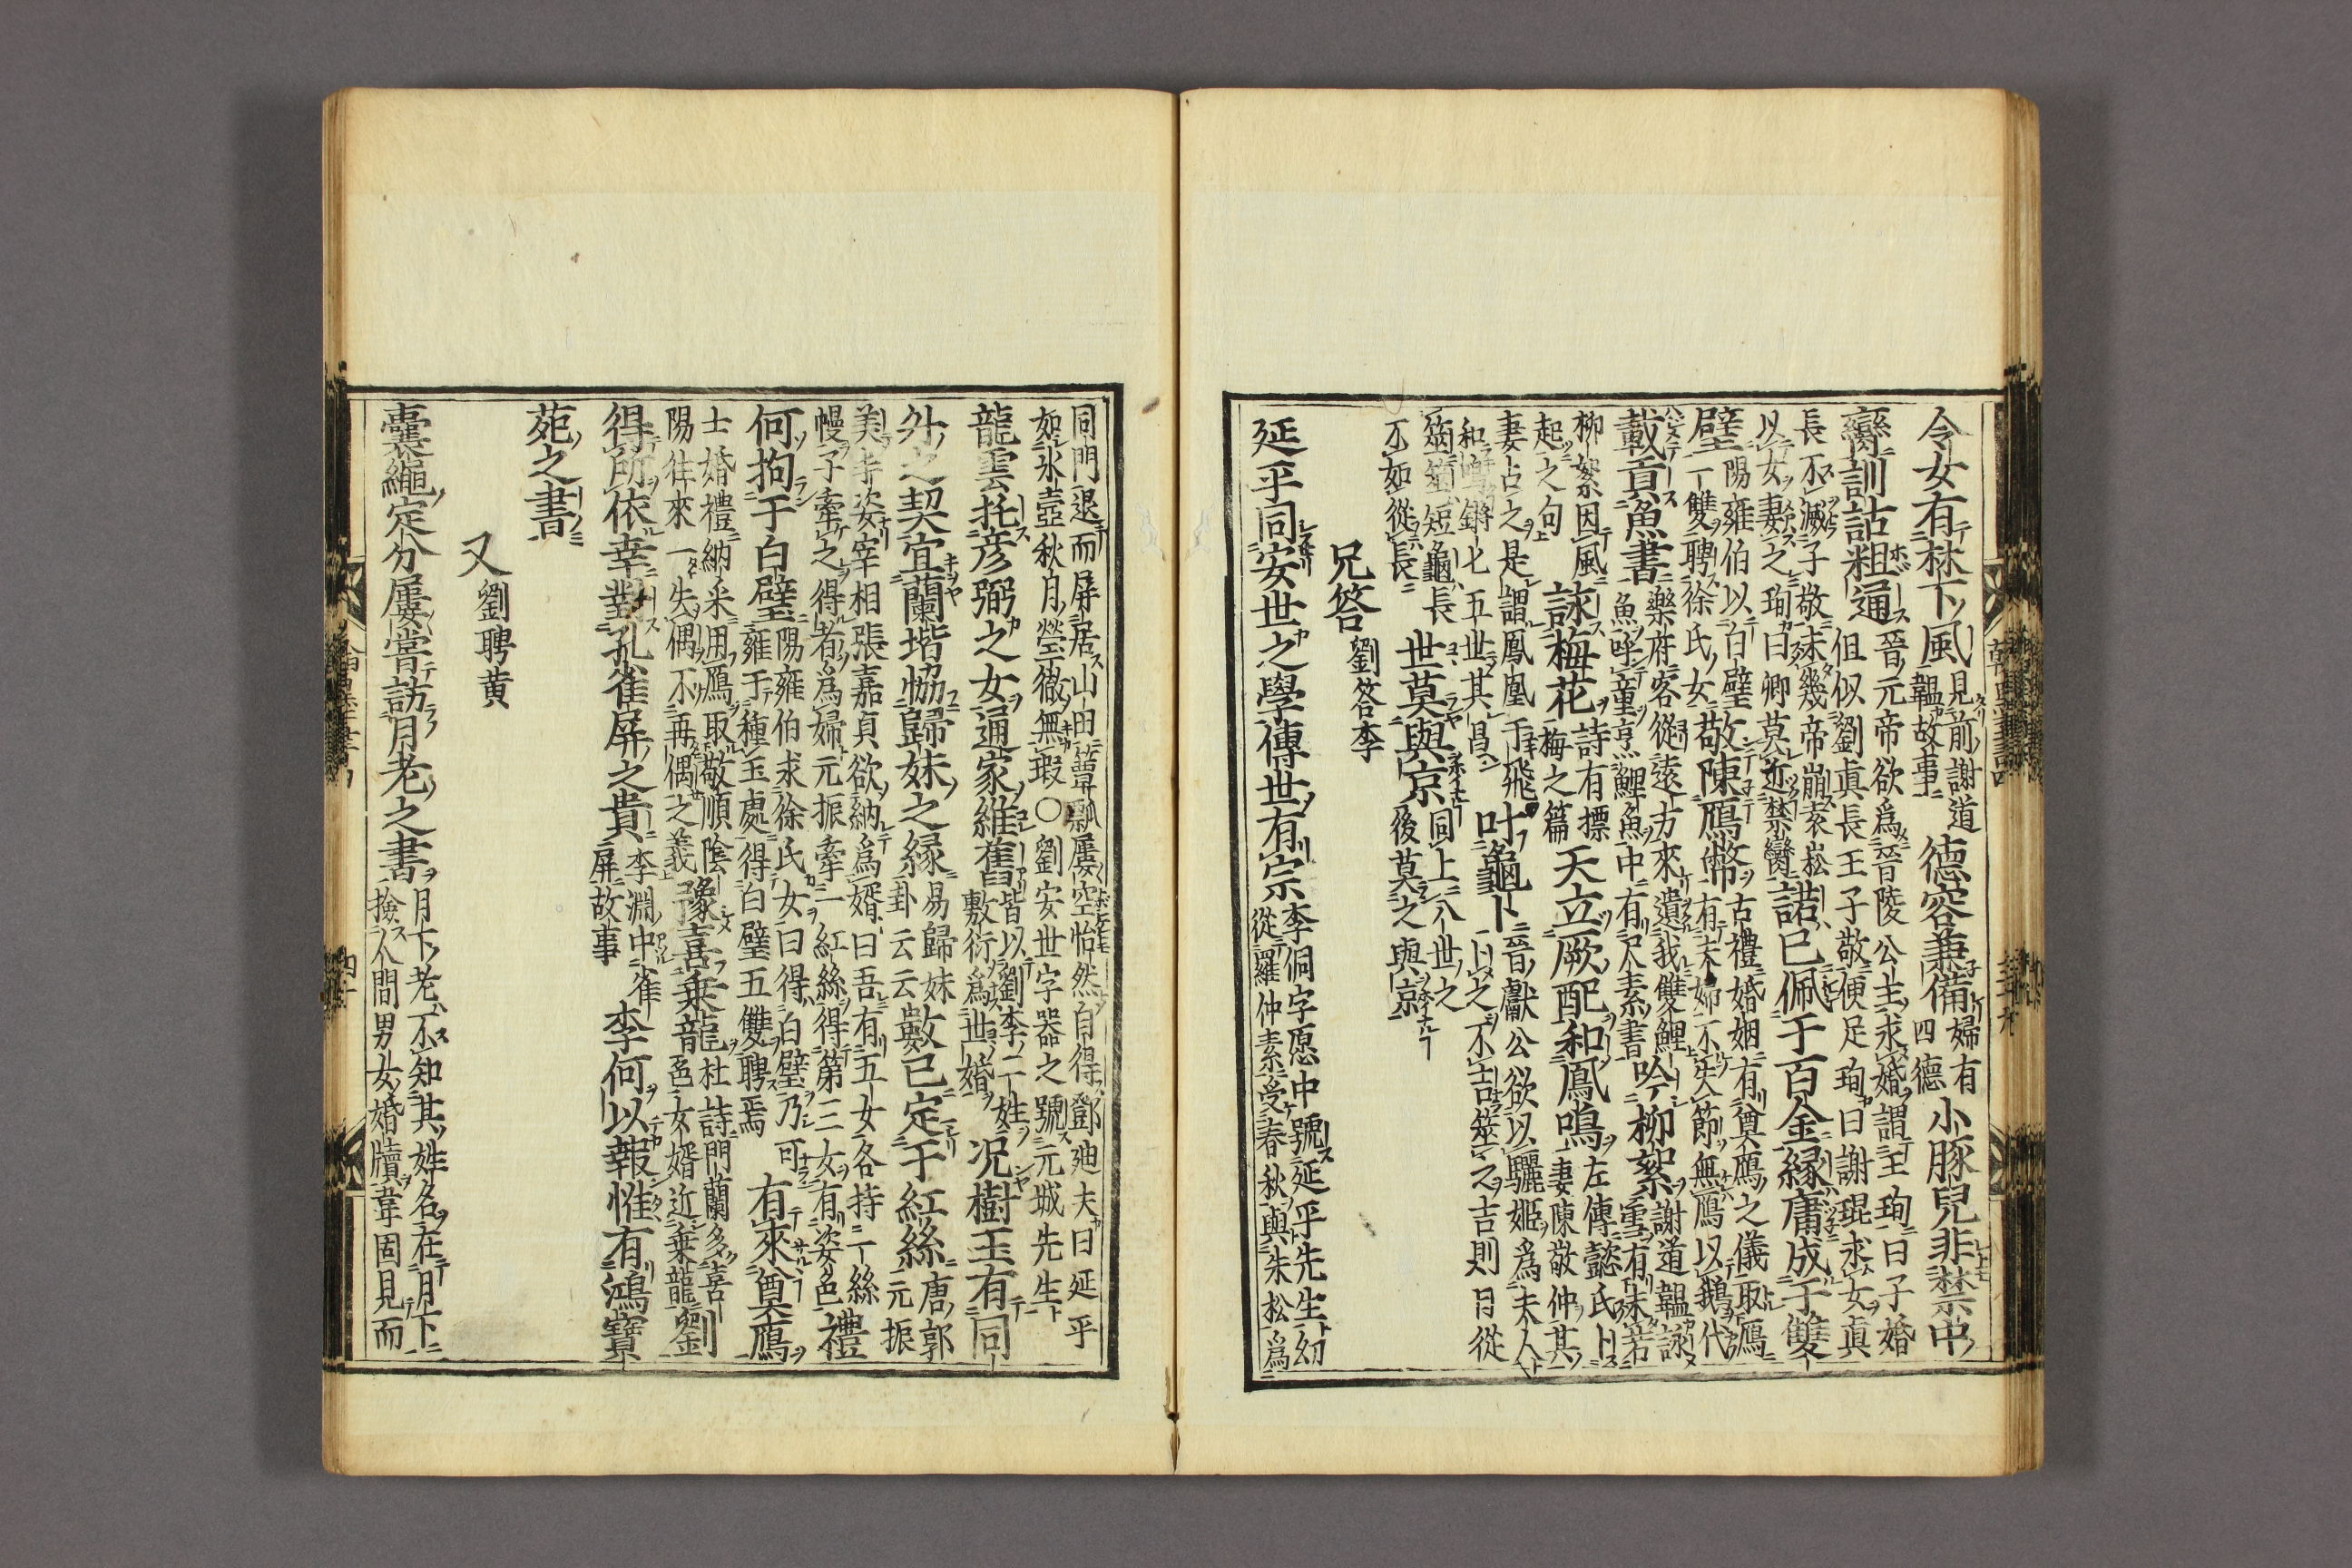 令女有林下風見前謝道韞故事德容兼備婦有四德小豚兒非禁中
臠訓詁粗通晉元帝欲爲晉陵公主求婚謂王珣曰子婚但似劉眞長王子敬便足珣曰謝琨求女眞
長不減子敬未幾帝崩袁崧以女妻之珣曰卿莫近禁臠諾已佩于百金縁庸成于雙
璧陽雍伯以白璧一雙聘徐氏女敬陳鴈幣古禮婚姻有奠鴈之儀取鴈有未婦不失節無鴈以鵝代
載貢魚書樂府客從遠方來遺我雙鯉魚呼童烹鯉魚中有尺素書吟柳絮謝道韞詠雪有未若
柳絮因風起之句詠梅花詩有摽梅之篇天立厥配和鳳鳴左傳懿氏卜妻陳敬仲其
妻占之是謂鳳凰于飛和鳴鏘匕五世其昌叶龜卜晉獻公欲以驪姬爲夫人卜之不吉筮之吉則曰從
筮筮短龜長不如從長世莫與京同上八世之後莫之與京
兄答 劉答李
延平同安世之學傳世有宗李侗字愿中號延平先生幼從羅仲素受春秋與朱松爲
同門退而屏居山田簞瓢屢空怡然自得鄧廸夫曰延平如氷壺秋月瑩徹無瑕〇劉安世字器之號元城先生
龍雲托彦弼之女通家維舊皆以劉李二姓敷衍爲世婚况樹玉有同
外之契宜蘭堦恊歸妹之縁易歸妹卦云云數已定于紅絲唐郭元振
美丰姿宰相張嘉貞欲納爲婿曰吾有五女各持一絲幔子牽之得者爲婦元振牽一紅絲得第三女有姿色禮
何拘于白璧陽雍伯求徐氏女曰得白璧乃可雍于種玉處得白璧五雙聘焉有來奠鴈
士婚禮納采用鴈取敬順陰陽往來一失偶不再偶之義豫喜乗龍杜詩門蘭多喜色女婿近乗龍劉
得所依幸對孔雀屏之貴李淵中雀屏故事李何以報惟有鴻寶
苑之書
又 劉聘黄
嚢繩定分屢嘗訪月老之書月下老不知其姓名在月下撿人間男女婚牘韋固見而